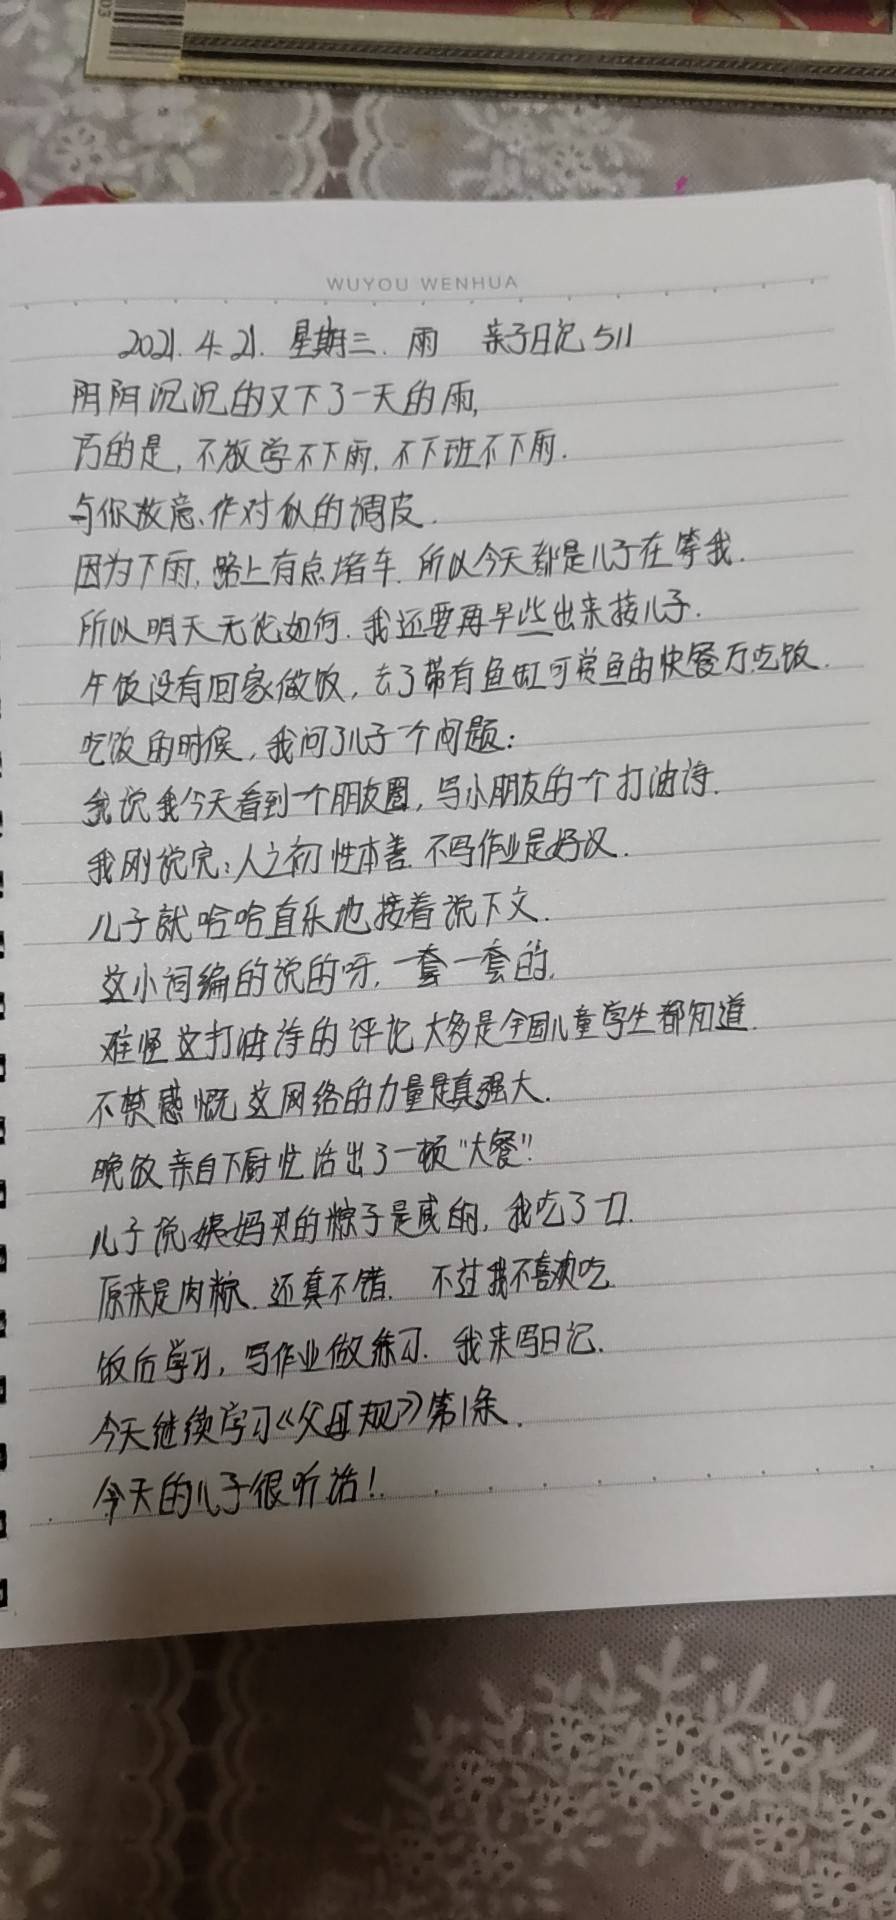 03
WUYOU WENHUA
2021.4.21. 星期三. 雨 亲子日记511
阴阴沉沉的又下了一天的雨,
巧的是,不放学不下雨,不下班不下雨.
与你故意、作对似的调皮.
因为下雨,路上有点堵车.所以今天都是儿子在等我.
所以明天无论如何.我还要再早些出来接儿子.
午饭没有回家做饭,去了带有鱼缸可赏鱼的快餐厅吃饭.
吃饭的时候,我问了儿子一个问题:
我说我今天看到一个朋友圈,写小朋友的一个打油诗.
我刚说完:人之初性本善.不写作业是好汉.
儿子就哈哈直乐地接着说下文.
这小词编的说的呀,一套一套的.
难怪这打油诗的评论大多是全国儿童学生都知道.
不禁感慨这网络的力量是真强大.
晚饭亲自下厨忙活出了一顿"大餐"!
儿子说姨妈买的粽子是咸的,我吃了一口.
原来是肉粽.还真不错.不过我不喜欢吃
饭后学习,写作业做练习.我来写日记.
今天继续学习《父母规》第1条.
今天的儿子很听话!